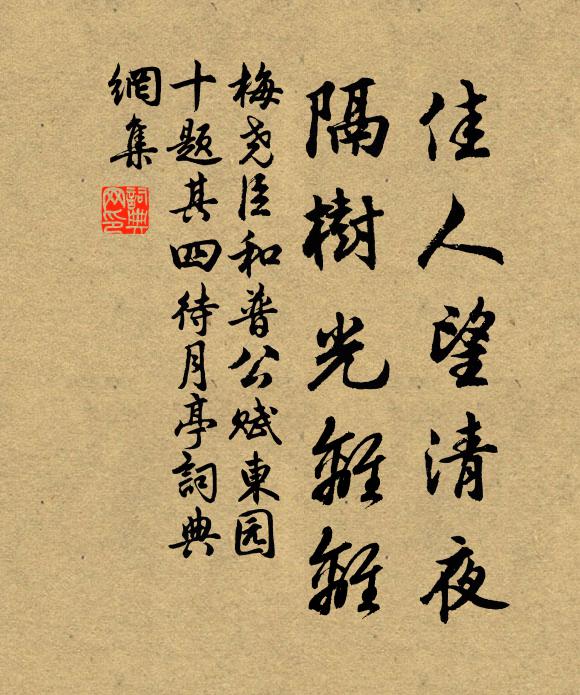 佳人望清夜
隔樹光離離
梅尧臣和普公赋東园
十题其四待月亭詞典
網集
詞典
网印